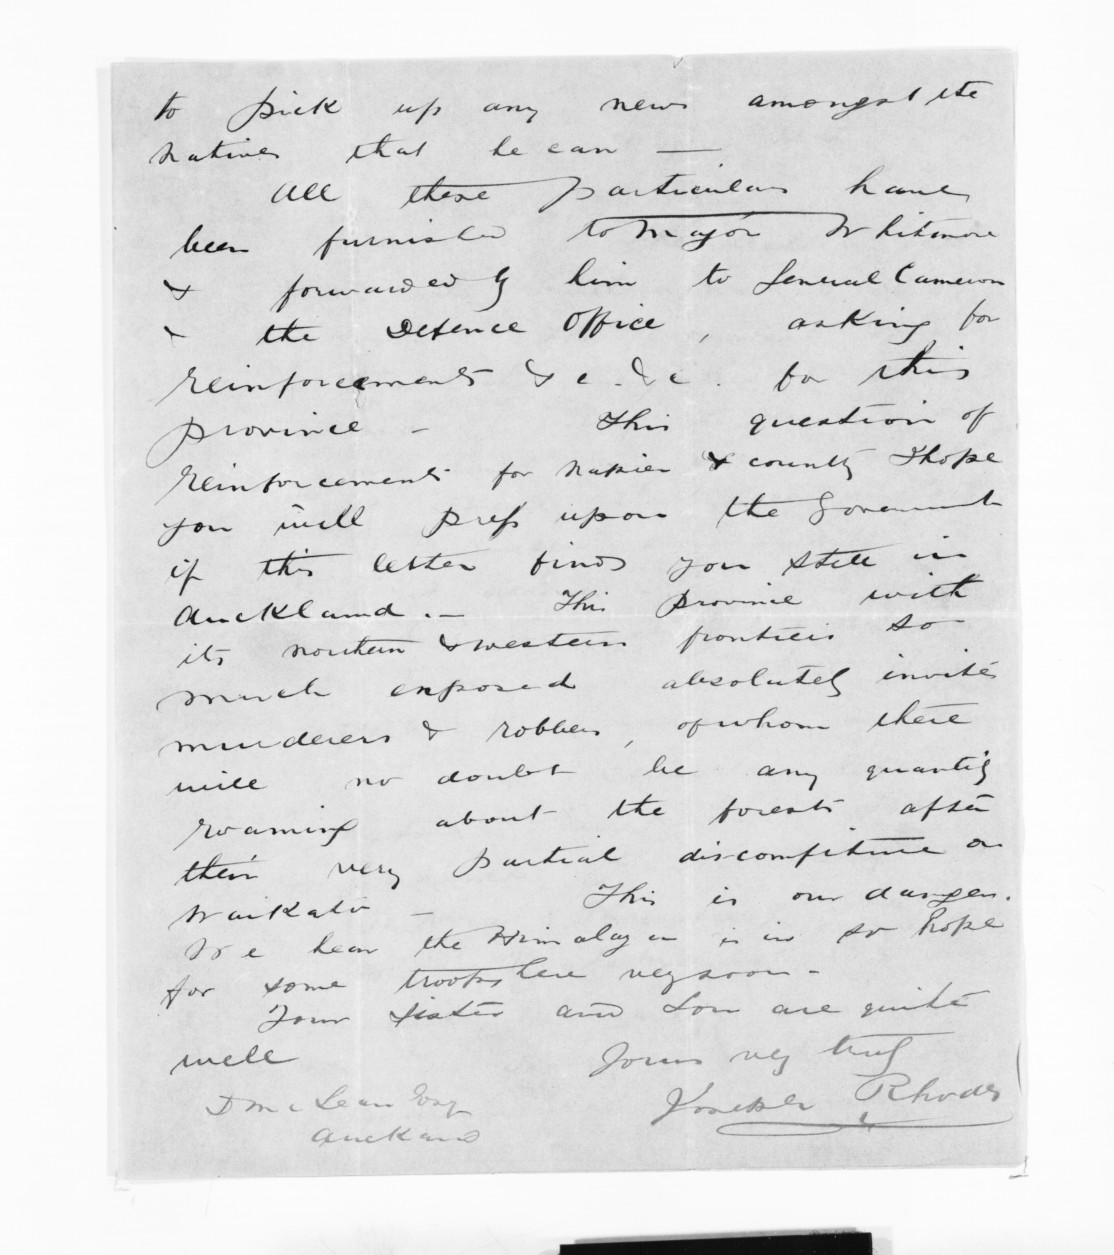 to pick up any news amongst the
natives that he can —
All these particulars have
been furnished to Major Whitmore
& forwarded by him to General Cameron
& the Defence Office, asking for
reinforcements &c. &c. for this
province - This question of
reinforcements for Napier & county I hope
you will press upon the Government
if this letter finds you still in
Auckland. — This province with
its northern & western frontiers so
much exposed absolutely invites
murderers & robbers, of whom there
will no doubt be any quantity
roaming about the forests after
their very partial discomfiture on
Waikato - This is our danger.
We hear the Himalaya is in so hope
for some troops here very soon -
Your sister and Son are quite
well Yours very truly
D McLean Esq Joseph Rhodes
Auckland